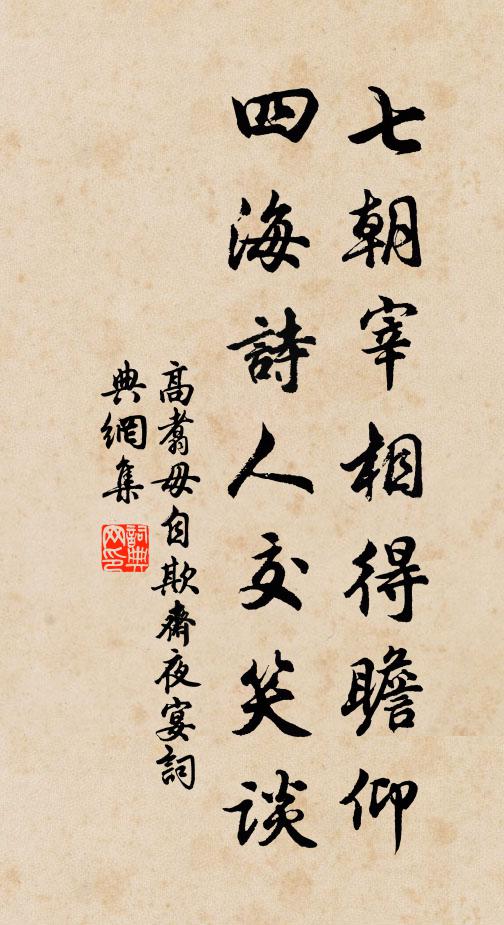 七朝宰相得瞻仰
四海詩人交笑談
高翥毋自欺齋夜宴詞
典網集
詞典網印